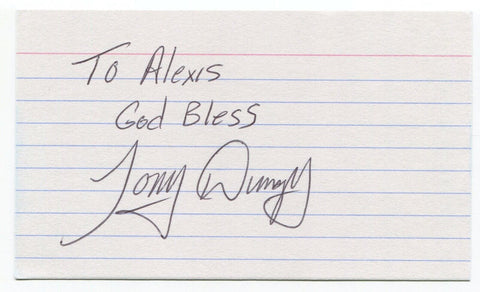 To Alexis
God Bless
Tony Dungy